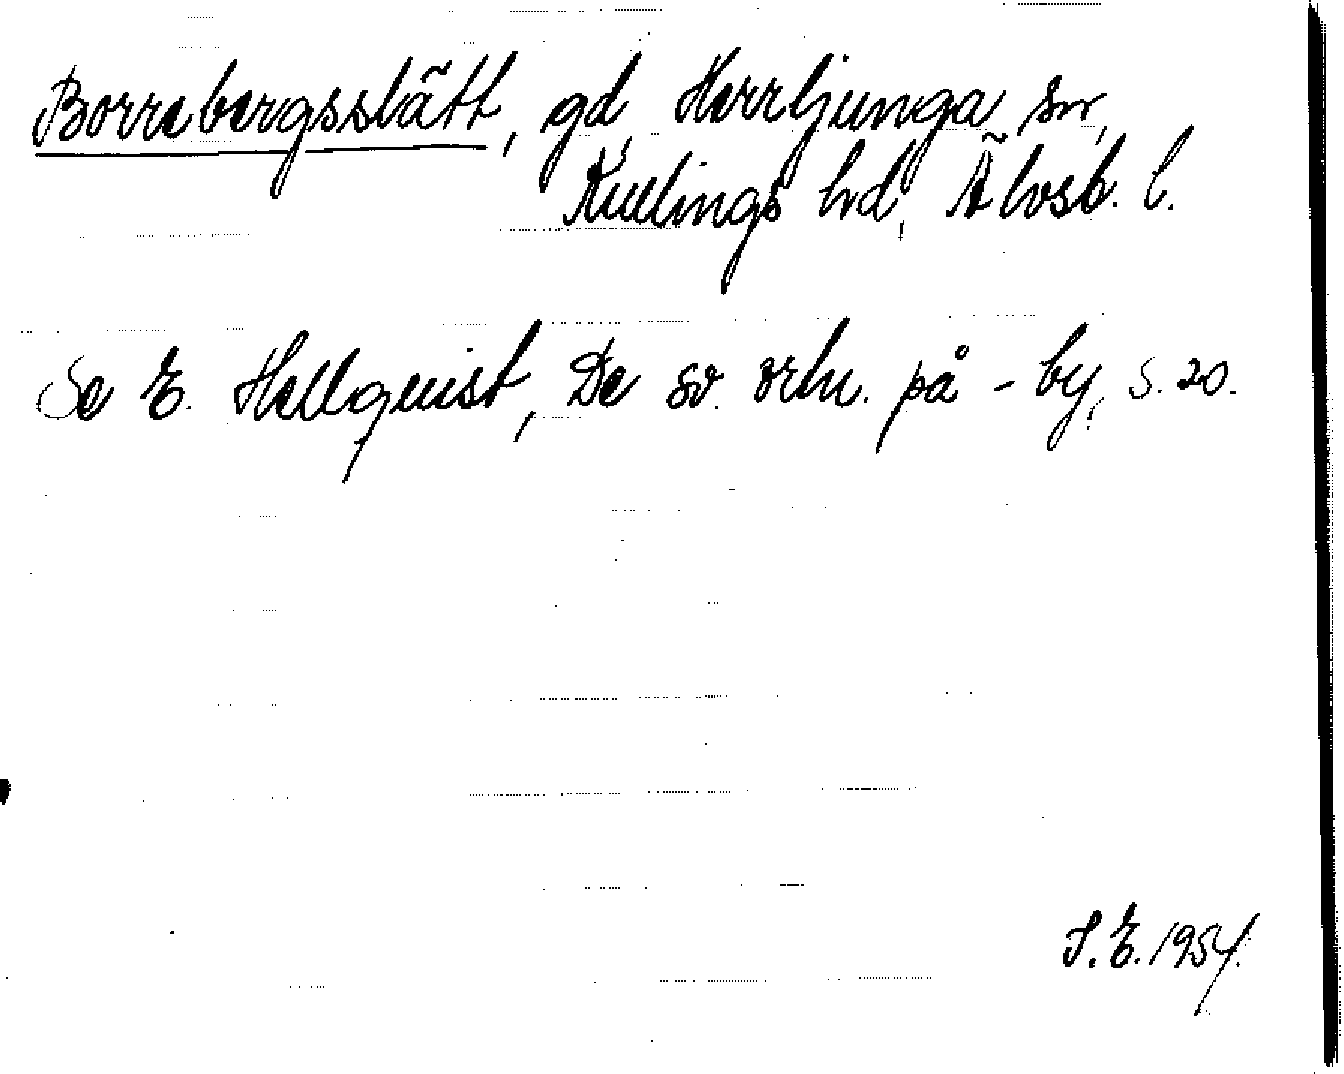 Borrebergsslätt, gd, Herrljunga sn,
Kullings hd, Älvsb. l.
Se E. Hellquist, De sv. ortn. på -by, s. 20.
S. E. 1954.